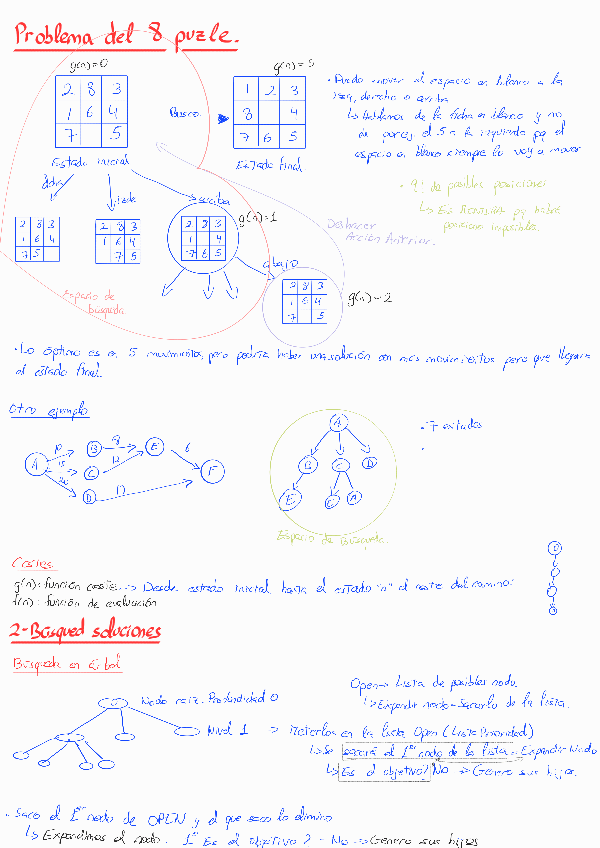 Problema del 8 puzle.
g(n)=0
g(n)=5
2 8 3
1 6 4
7 5
Buscar
1 2 3
8 4
7 6 5
Estado inicial
Estado final
• Puedo mover el espacio en blanco a la
izq, derecha o arriba
↳ Hablamos de la ficha en blanco y no
de pongo el 5 a la izquierda pq el
espacio en blanco siempre lo voy a mover
• 9! de posibles posiciones
↳ Es pq habrá
posiciones imposibles.
dcha
izda
arriba
g(n)=1
2 8 3
1 6 4
7 5
2 8 3
1 6 4
7 5
2 8 3
1 4
7 6 5
Deshacer
Acción Anterior.
abajo
2 8 3
1 6 4
7 5
g(n)=2
Espacio de
búsqueda.
• Lo óptimo es en 5 movimientos, pero podría haber una solución con más movimientos pero que llegara
al estado final.
Otro ejemplo
A
10
15
20
B
C
D
8
12
17
E
6
F
A
B C D
E E A
• 7 estados
•
Espacio de Búsqueda.
Costes
g(n): función coste --> Desde estado inicial hasta el estado "n" el coste del camino.
f(n): función de evaluación
2-Búsqued soluciones
Búsqueda en árbol
Nodo raiz. Profundidad 0
Nivel 1 => Meterlos en la lista Open (Lista Prioridad)
↳ Se sacará el 1er nodo de la lista - Expandir Nodo
↳ Es el objetivo? No => Genero sus hijos.
Open -> Lista de posibles nodos
↳ Expandir nodo - Sacarlo de la lista.
• Saco el 1er nodo de OPEN y el que saco lo elimino
↳ Expandimos el nodo. 1er Es el objetivo? - No --> Genero sus hijos